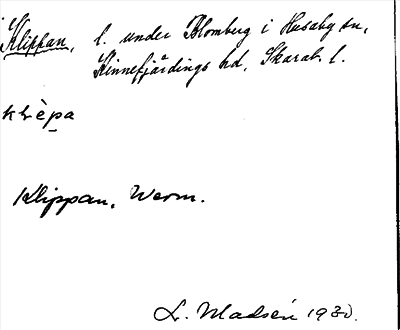 Klippan, l. under Blomberg i Husaby sn,
Kinnefjärdings hd, Skarab. l.
klèpa
Klippan, Werm.
L. Madsén 1930.